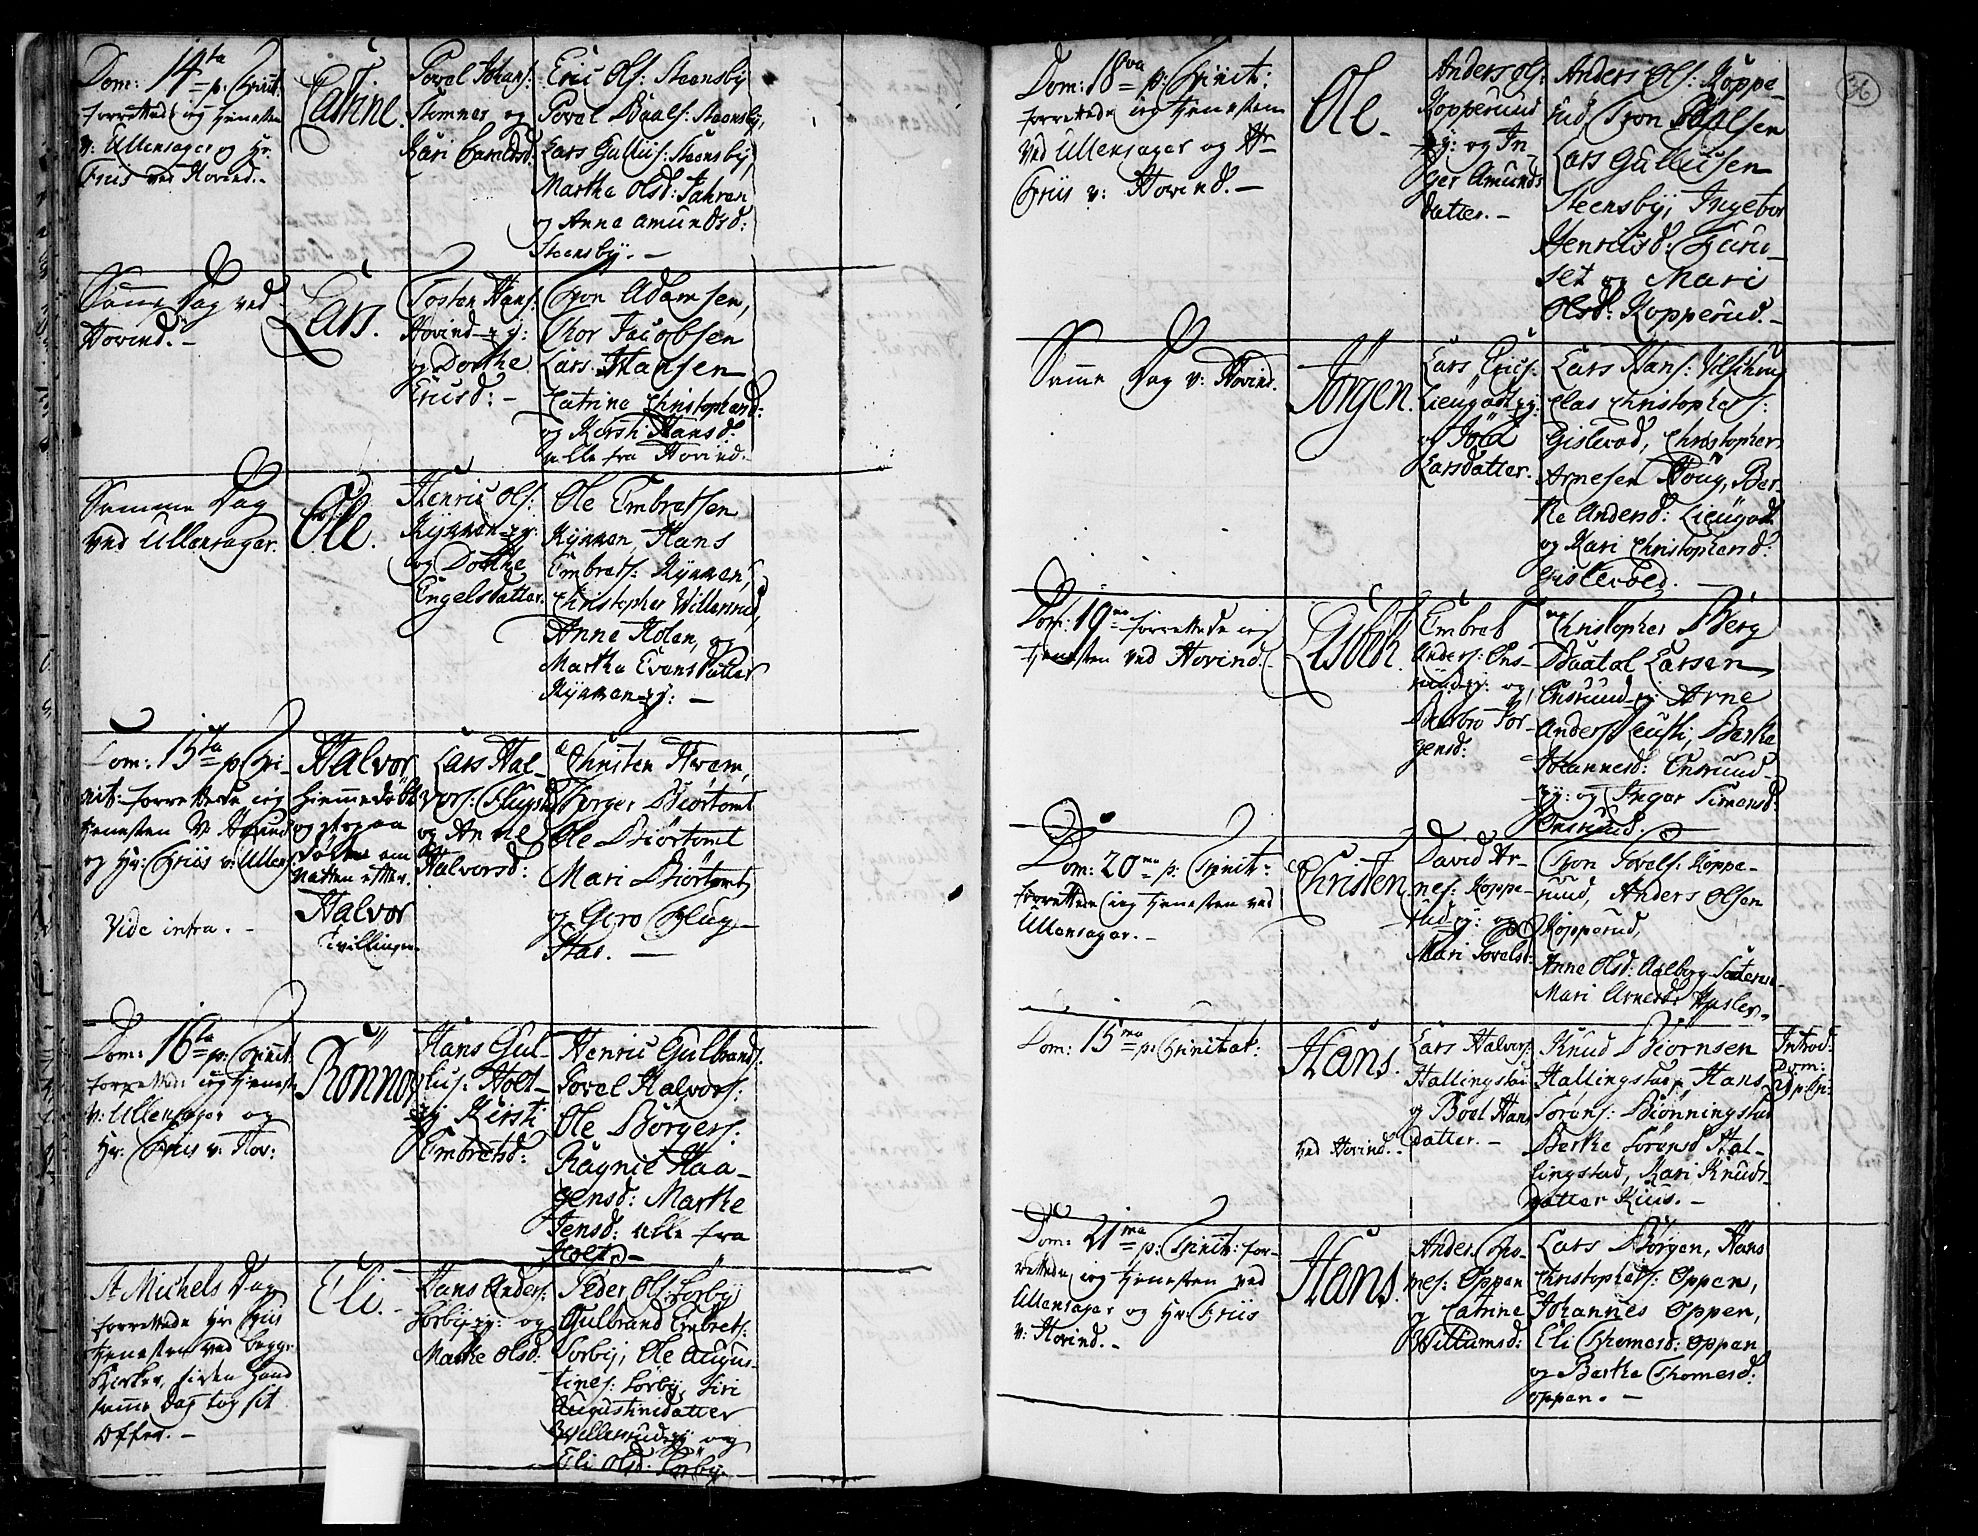 Dom: 14ta p: Trinit:
forrettede ieg tienesten
v: Ullensager og Hr:
Friis ved Hovind.-
Catrine.
Povel Johans:
Stomner og
Kari
Eric Ols: Steensby
Povel Paals: Steensby,
Lars Gulliis: Steensby,
Marthe Olsd: Jahren
og Anne Amundsd:
Steensby.-
Samme Dag ved
Hovind.-
Lars.
Tosten Hans:
Hovind-ey:
og Dorthe
Ericsd:-
Tron Adamsen,
Thor Jacobsen
Lars Hansen
Catrine Christophersd:
og Kirsti Hansd:
alle fra Hovind.-
Samme Dag
ved Ullensager.
Ole.
Henric Ols:
Kynnen-ey:
og Dorthe
Engelsdatter.
Ole Embretsen
Kynnen, Hans
Embrets: Kynnen,
Christopher Willersrud,
Anne Holen, og
Marthe Evensdatter
Kynnen-ey:-
Dom: 15ta p Tri-
nit: forrettede ieg
tienesten v Hovind
og Hr: Friis v: Ullens:
Vide infra.-
Halvor
hiemmedøbt
og
døde om
Natten efter.
Halvor
Tvillinger.
Lars Hal-
vors:
og Anne
Halvorsd:
Christen Hvam,
Borger Biørtomt
Ole Biørtomt
Mari Biørtomt
og Goro Flug-
stad.-
Dom: 16ta p: Trinit:
forrettede ieg tieneste
v: Ullensager og
Hr: Friis v: Hov:
Rønnou
Hans Gul-
lus: Holt-
ey Kirsti
Embretsd:
Henric Gulbrands:
Povel Halvors:
Ole Børgers:
Ragnil Haa-
gensd: Marthe
Jensd: alle fra
Holt.-
St Michels Dag
forrettede Hr: Friis
tienesten ved begge
Kirker, siden Hand
samme Dag tog sit
Offer.-
Eli.-
Hans Anders:
Sorby-ey: og
Marthe Olsd:
Peder Ols: Sorby
Gulbrand Embrets:
Sorby, Ole Augus-
tines: Sorby, Siri
Augustinsdatter
Willersrud-ey og
Eli Olsd: Sørby.
56
Dom: 18va p: Trinit:
forrettede ieg tienesten
ved Ullensager og Hr
Friis v: Hovind.-
Ole.
Anders Ols:
Kopperuud
ey: og In-
ger Amunds
datter.-
Anders Ols: Koppe-
rud, Tron Paalsen
Lars Gullicsen
Steensby, Ingebor
Henricsd: Furu-
set og Mari
Olsd: Kopperud.-
Samme Dag v: Hovind.
Jørgen.
Lars Erics:
Lieugodt-ey:
og Iold
Larsdatter.
Lars Hans:
Clas Christophers:
Gislevod, Christopher
Arnesen Houg, Ber-
the Andersd: Lieugodt
og Kari Christophersd:
Gislevold.
Dom: 19na forrettede ieg
tienesten ved Hovind.
Lisbeth.
Embret
Anders: Ens-
ruud-ey: og
Barbro Jor-
gensd:
Christopher Berg
Baatol Larsen
Ensruud-ey: Arne
Anders: Leusti, Berthe
Johannesd: Ensruud-
ey: og Inger Simensd:
Ensruud.
Dom: 20ma p: Trinit:
forrettede ieg tienesten ved
Ullensager.-
Christen.
David Ar-
nes: Koppe-
rud-ey: og
Mari Povelsd:
Tron Povels: Koppe-
ruud, Anders Olsen
Kopperud,
Anne Olsd: Aalberg
Mari Arnesd: Hasler.
Dom: 15ma p: Trinitat:
Hans.
ved Hovind.-
Lars Halvors:
Hallingstad
og Boel Hans
datter.-
Knud Biørnsen
Hallingstad, Hans
Sørens: Biønningstad
Berthe Sørensd Hal-
lingstad, Kari Knuds-
datter Kius.-
Introd:
Dom:
21 p: Tri:
Dom: 21ma p: Trinit: for-
rettede ieg tienesten ved
Ullensager og Hr: Friis
v: Hovind.-
Hans.
Anders Tho-
mes: Oppen
og Catrine
Willumsd:
Lars Børgen, Hans
Christophers: Oppen,
Johannes Oppen,
Eli Thomesd: Oppen
og Berthe Thomesd:
Oppen.-